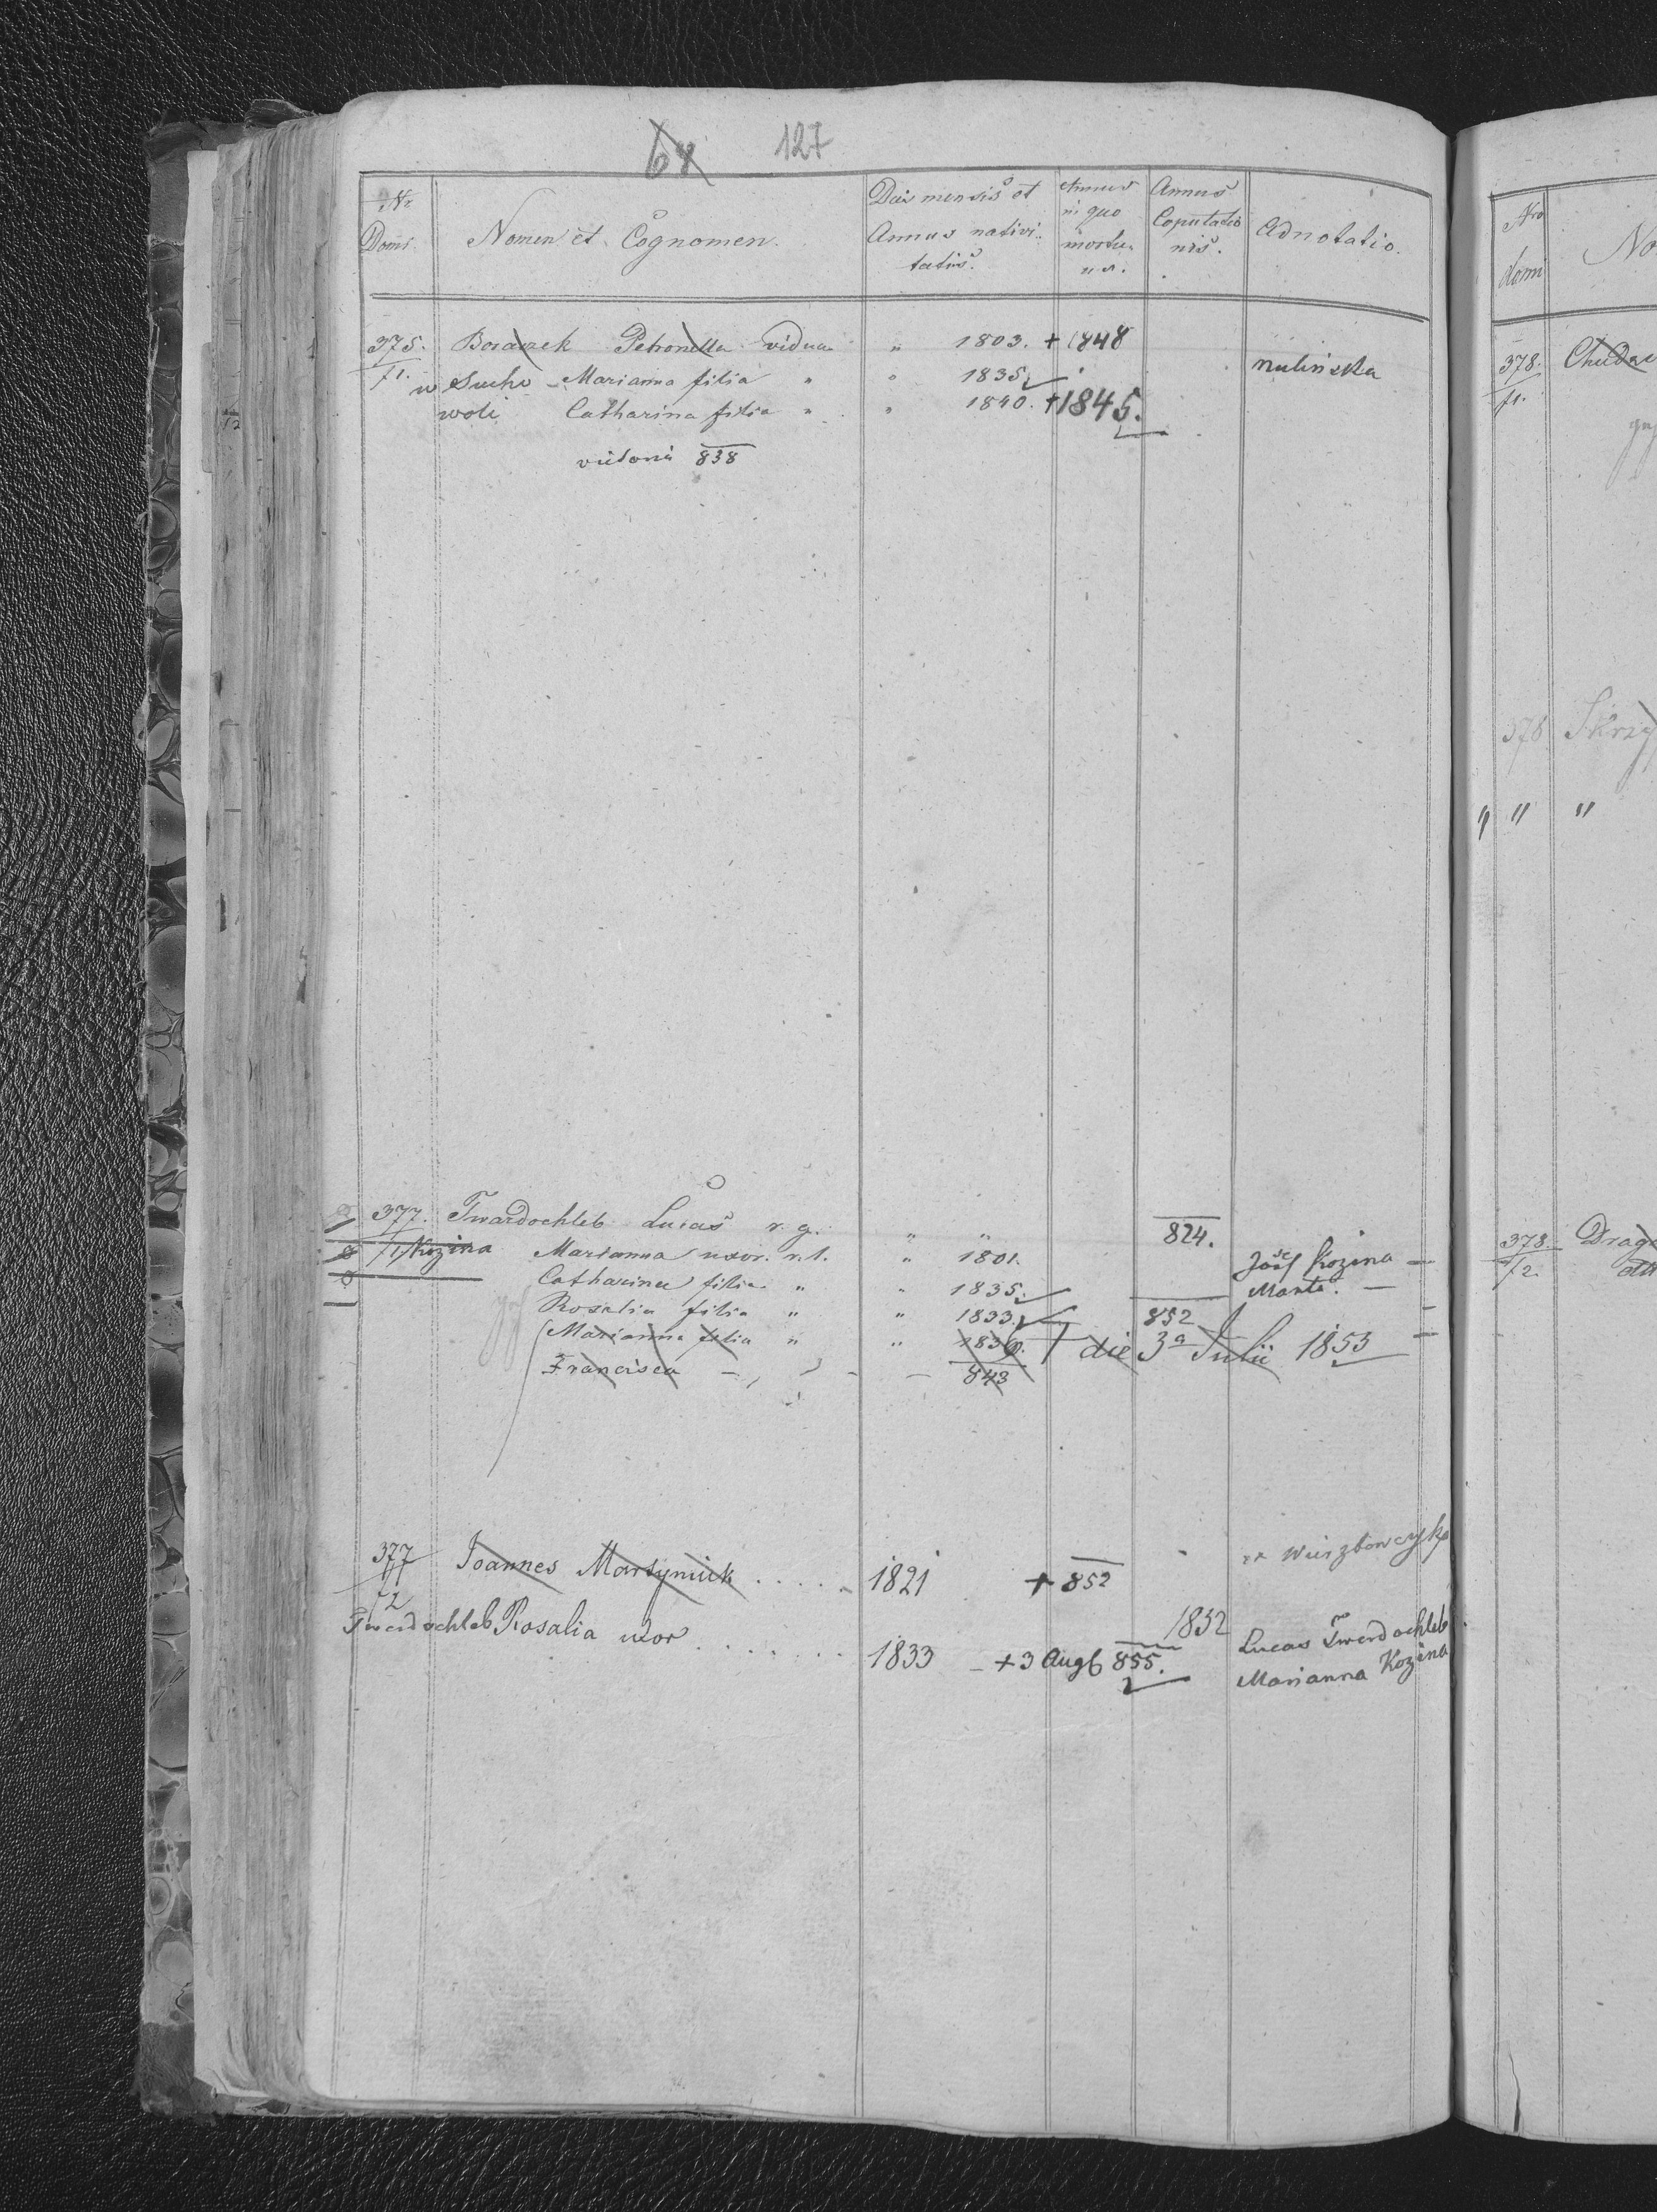 64 127
Nr Domi. Nomen et Cognomen. Dies mensis et Annus nativitatis. Annus in quo mortuus. Annus Copulationis. Adnotatio.
375. Boraczek Petronella vidua " 1803. + 1848
/1. w Sucho - Marianna filia " " 1835. nulinska
woli Catharina filia " " 1840. + 1845.
838
377. Twardochleb Lucas r. g. " " 824.
/1. Kozina Marianna uxor. r. l. " 1801. Josef Kozina -
Catharina filia " " 1835. Mante. -
Rosalia filia " " 1833. 852
Marianna filia " " 1836. † die 3a Julii 1853
Francisca - " - - 843
377
/2 Joannes Martyniuk ..... 1821 + 852 ex
Twerdochleb Rosalia uxor ...... 1833 - + 3 Augt 855. 1852 Lucas Twerdochleb
Marianna Kozina
Nro domi No
378. Chuda
/1.
378 Skrzy
" " "
378. Drag
/2.